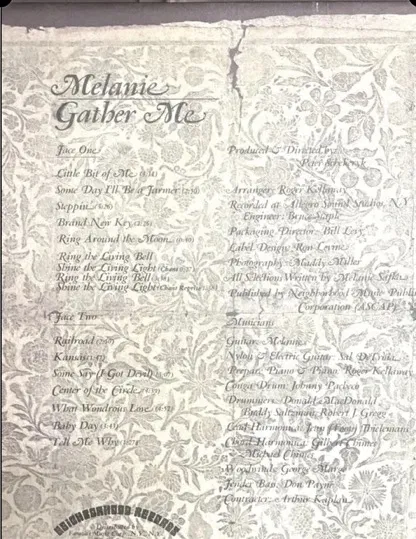 Melanie
Gather Me
Face One
Little Bit of Me
Some Day I'll Be a Farmer
Steppin
Brand New Key
Ring Around the Moon
Ring the Living Bell
Shine the Living Light
Ring the Living Bell
Shine the Living Light
Face Two
Railroad
Kansas
Some Say (I Got Devil)
Center of the Circle
What Wondrous Love
Baby Day
Tell Me Why
NEIGHBORHOOD RECORDS
Distributed by
Famous Music Corp., N.Y., N.Y.
Produced & Directed by:
Peter Schekeryk
Arranger: Roger Kellaway
Recorded at Allegro Sound Studios, N.Y.
Engineer: Bruce Staple
Packaging Director: Bill Levy
Label Design: Ron Levine
Photography: Maddy Miller
All Selections Written by Melanie Safka
Published by Neighborhood Music Publi
Corporation (ASCAP)
Musicians
Guitar: Melanie
Nylon & Electric Guitar: Sal DiTroia
Prepare Piano & Piano: Roger Kellaway
Conga Drum: Johnny Pacheco
Drummers: Donald MacDonald
Buddy Saltzman, Robert J. Gregg
Lead Harmonica: Jean Thielemans
Chord Harmonica: Gilbert Chimes
Michael Chimes
Woodwinds: George Marge
Fender Bass: Don Payne
Contractor: Arthur Kaplan